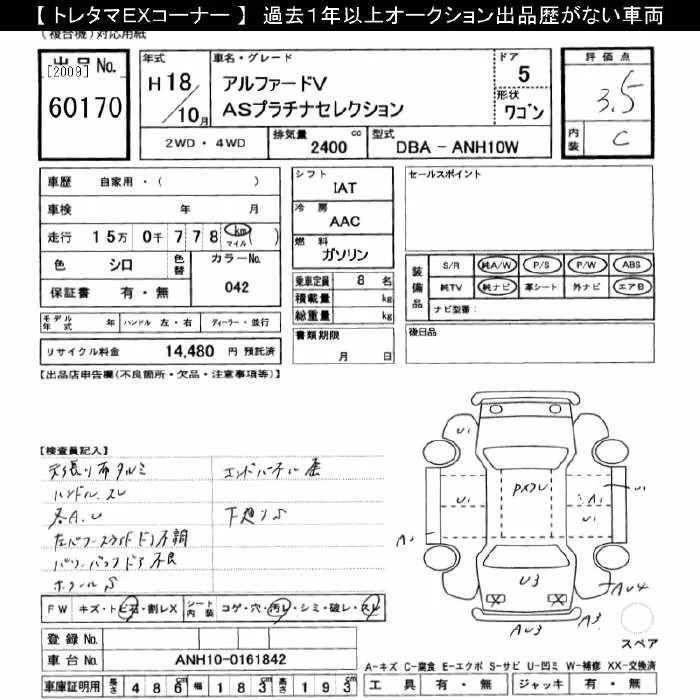 【 トレタマEXコーナー 】 過去1年以上オークション出品歴がない車両
(複合機)対応用紙
出品 No.
[2009]
60170
年式
H 18 / 10 月
車名・グレード
アルファードV
ASプラチナセレクション
ドア
5
形状
ワゴン
2WD・4WD
排気量 2400 cc
型式 DBA - ANH10W
評価点
3.5
内装 C
車歴 自家用・( )
車検 年 月
走行 15万 0千 7 7 8 km マイル ( )
色 シロ 色替 カラーNo.
保証書 有・無 042
モデル年式 年 ハンドル 左・右 ディーラー・並行
リサイクル料金 14,480 円 預託済
シフト
IAT
冷房
AAC
燃料
ガソリン
乗車定員 8 名
積載量 kg
総重量 kg
書類期限
月 日
セールスポイント
装備品
S/R 純A/W P/S P/W ABS
純TV 純ナビ 革シート 外ナビ エアB
ナビ型番:
後日品
【出品店申告欄(不良箇所・欠品・注意事項等)】
【検査員記入】
天張り布タルミ
ハンドル スレ
各A.U
左パワースライドドア不調
パワーバックドア不良
ホイールS
下廻りS
U1
U1
PXフレ
A1
U1
U1
U1
A1
U3
AU4
A3
AU3
スペア
FW キズ・トビ石・割レX シート内装 コゲ・穴・汚レ・シミ・破レ・スレ
登録 No.
車台 No. ANH10-0161842
車庫証明用 長さ 486 cm 幅 183 cm 高さ 193 cm
A-キズ C-腐食 E-エクボ S-サビ U-凹ミ W-補修 XX-交換済
工具 有・無 ジャッキ 有・無